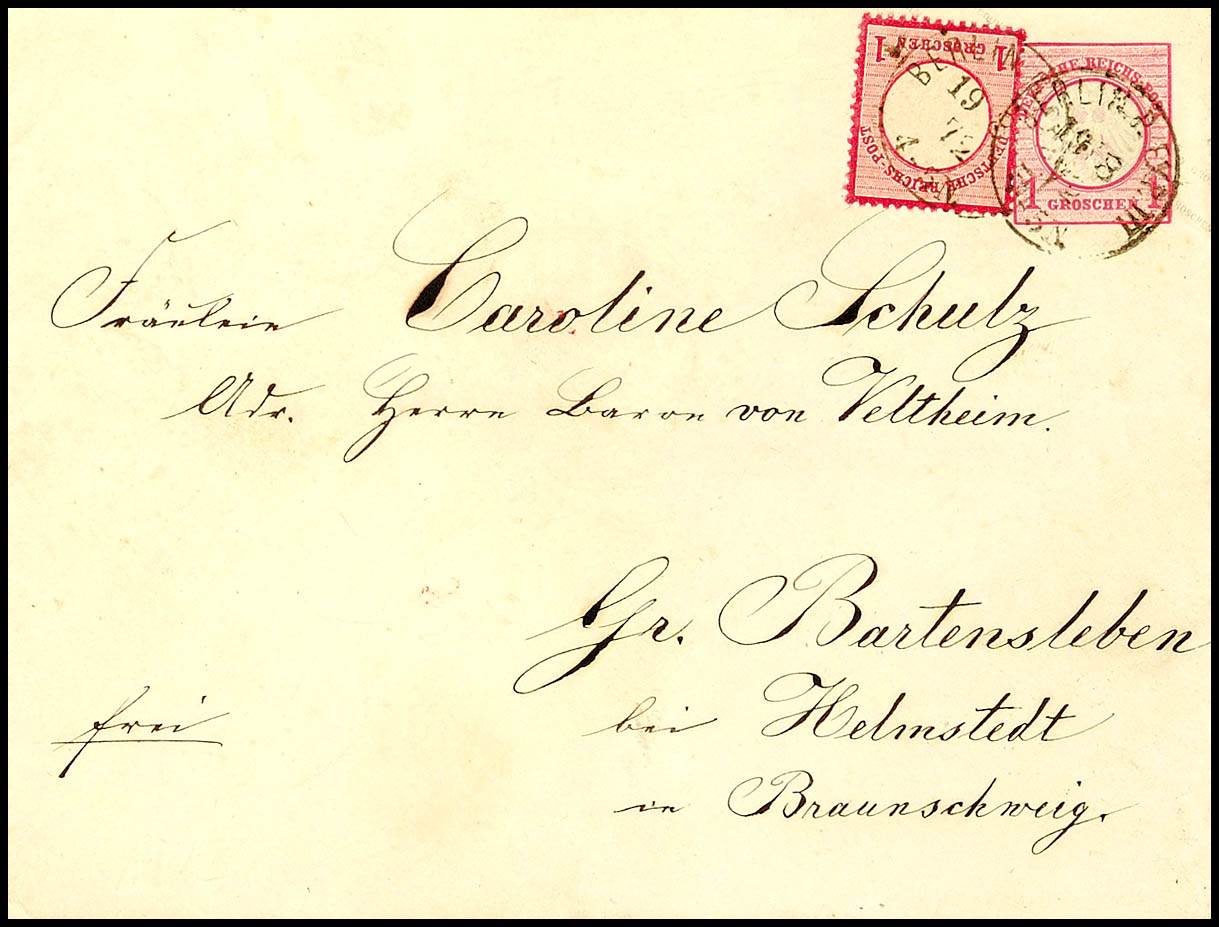 1 GROSCHEN 1
DEUTSCHE REICHS-POST
BERLIN
19
72
DEUTSCHE REICHS-POST
BERLIN
19
8
1 GROSCHEN 1
Fräulein Caroline Schulz
Adr. Herrn Baron von Veltheim.
Gr. Bartensleben
frei
bei Helmstedt
in Braunschweig.